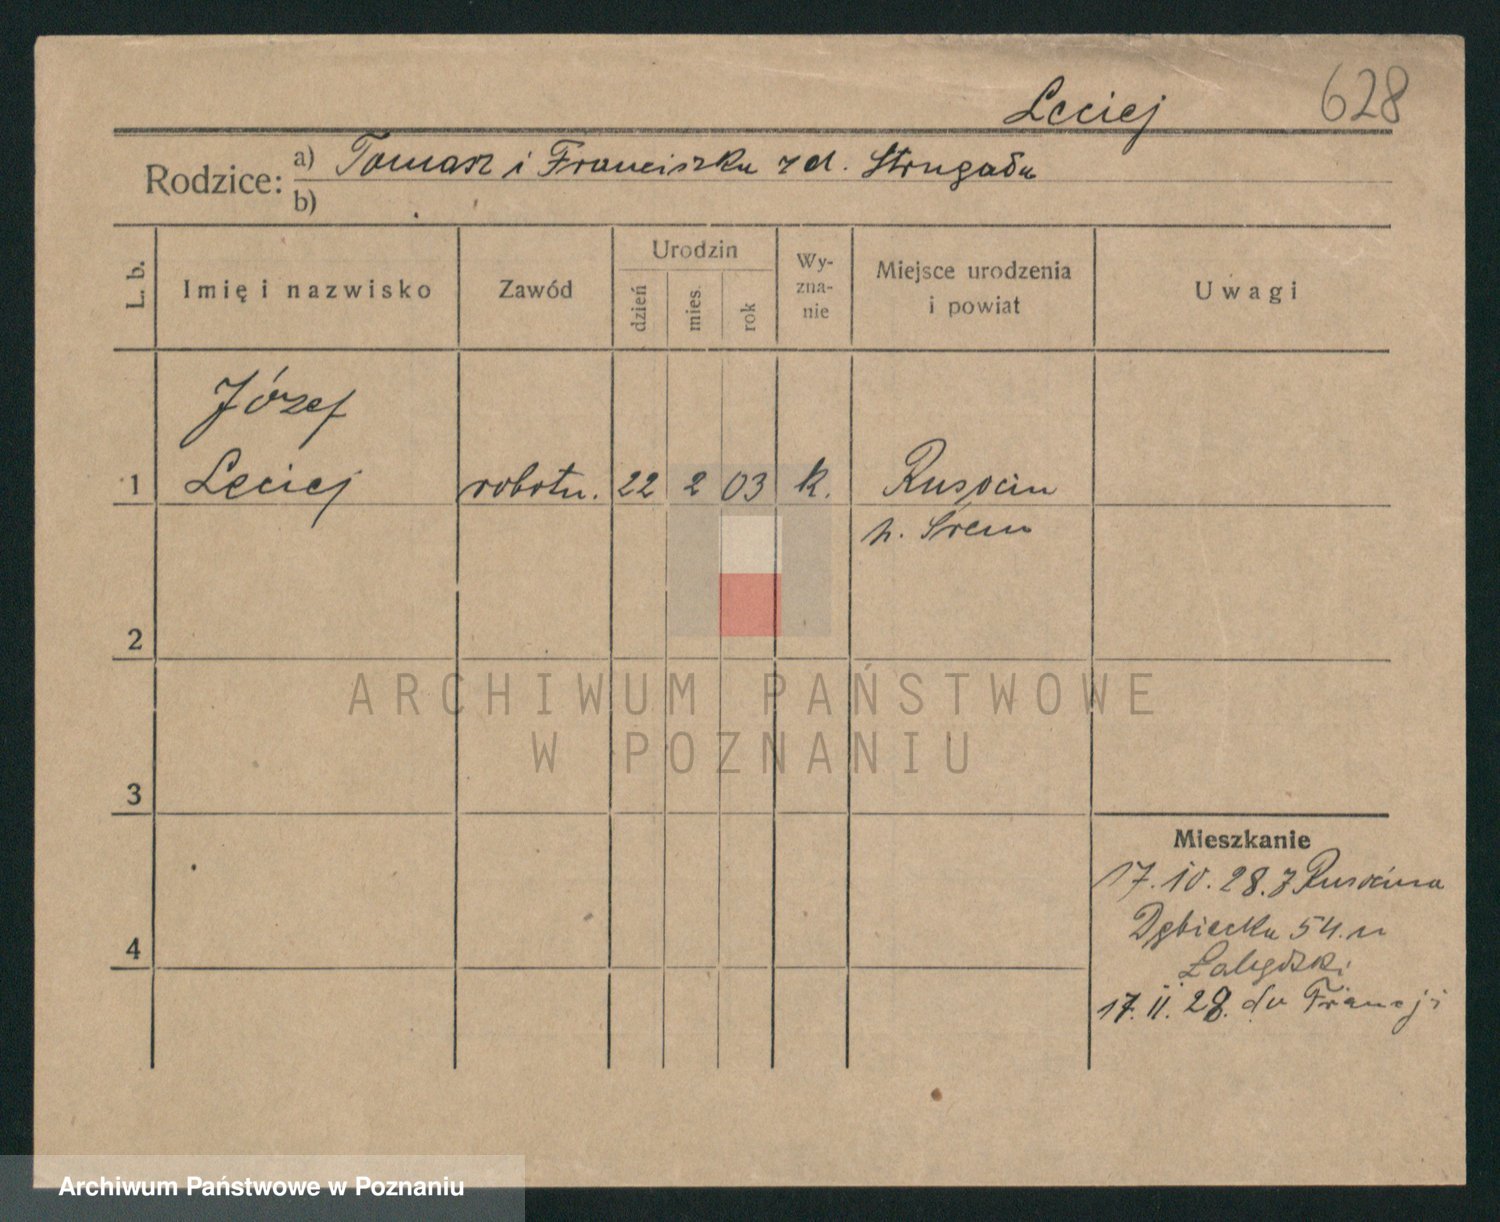 Leciej 628
Rodzice: a) Tomasz i Franciszka z d. Strugała
b)
L. b. Imię i nazwisko Zawód Urodzin dzień mies. rok Wyzna-nie Miejsce urodzenia i powiat Uwagi
Józef
1 Leciej robotn. 22 2 03 k. Rusocin
p. Śrem
2
ARCHIWUM PAŃSTWOWE
W POZNANIU
3
Mieszkanie
17.10.28. z Rusocina
Dębiecka 54. u
4
17.11.28. do Francji
Archiwum Państwowe w Poznaniu